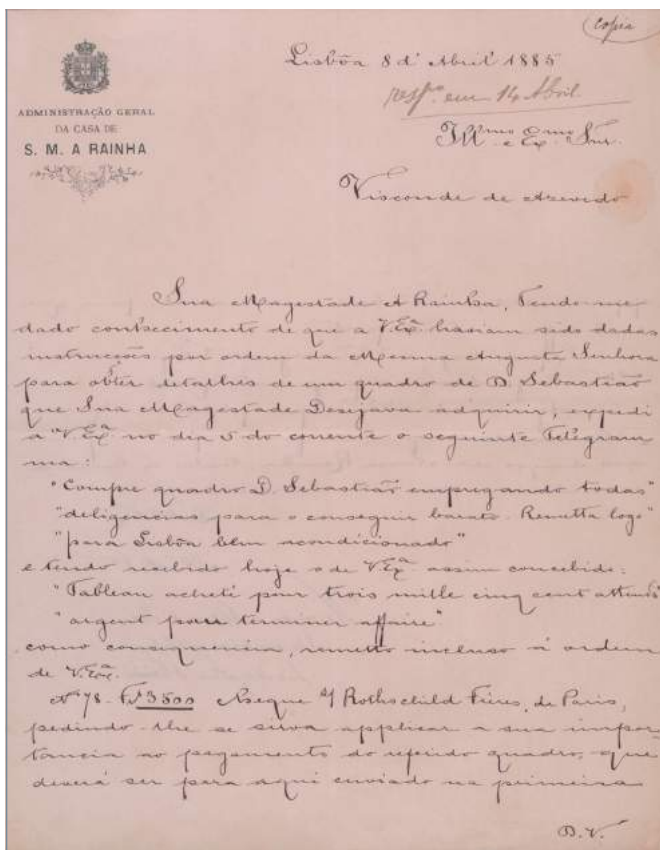 Copia
Lisbôa 8 d'Abril 1885
resp.º em 14 Abril
ADMINISTRAÇÃO GERAL
DA CASA DE
S. M. A RAINHA
Ill.mo e Ex.mo Snr.
Visconde de Azevedo
Sua Magestade A Rainha, Tendo-me
dado conhecimento de que a V.Ex.ª haviam sido dadas
instrucções por ordem da Mesma Augusta Senhora
para obter detalhes de um quadro de D. Sebastião
que Sua Magestade Desejava adquirir, expedi
a V.Ex.ª no dia 5 do corrente o seguinte Telegram
ma:
"Compre quadro D. Sebastião empregando todas"
"deligencias para o conseguir barato. Remetta logo"
"para Lisbôa bem acondicionado"
e tendo recebido hoje o de V.Ex.ª assim concebido:
"Tableau acheté pour trois mille cinq cent attends"
"argent pour terminer affaire"
como consequencia, remetto incluso á ordem
de V.Ex.ª
Nº 78. 3500 cheque s/ Rothschild Frères, de Paris,
pedindo-lhe se sirva applicar a sua impor
tancia ao pagamento do referido quadro, que
deverá ser para aqui enviado na primeira